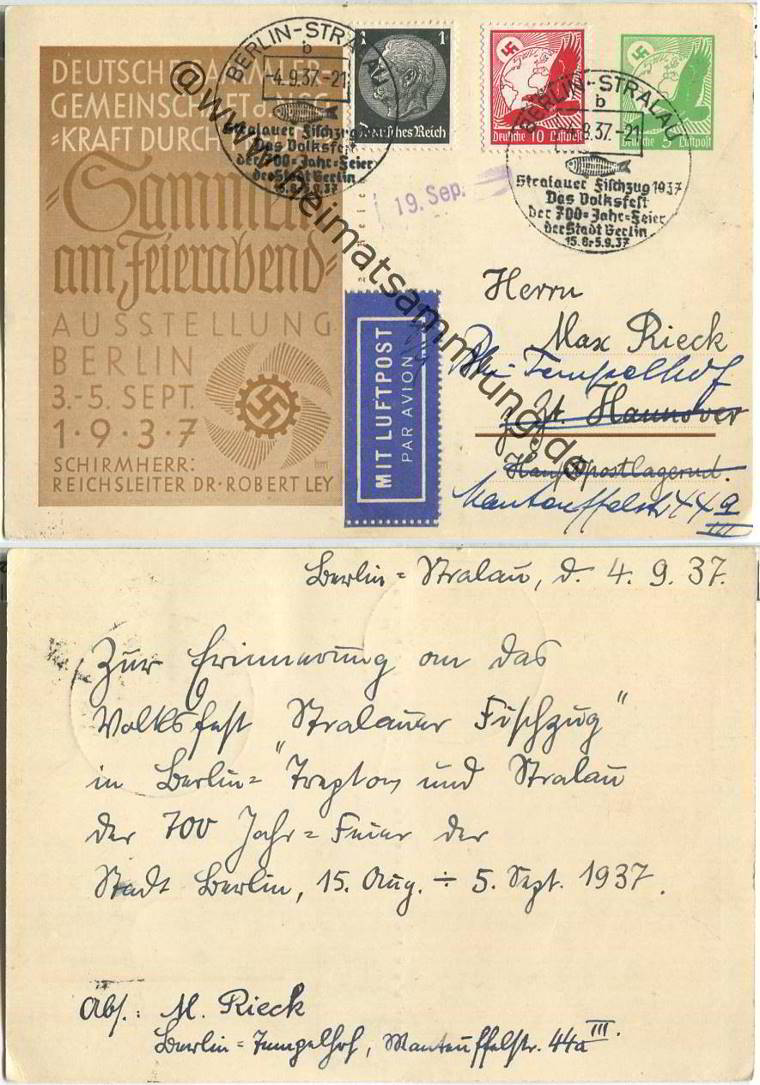 DEUTSCHE SAMMLER-
GEMEINSCHAFT
KRAFT DURCH
"Sammeln
am Feierabend"
AUSSTELLUNG
BERLIN
3.-5. SEPT.
1·9·3·7
SCHIRMHERR:
REICHSLEITER DR·ROBERT LEY
BERLIN-STRALAU
b
-4.9.37.-21
Stralauer Fischzug
Das Volksfest
der 700=Jahr=Feier
der Stadt Berlin
1 1
Deutsches Reich
Deutsche 10 Luftpost
Deutsche 5 Luftpost
BERLIN-STRALAU
b
37.-21
Stralauer Fischzug 1937
Das Volksfest
der 700=Jahr=Feier
der Stadt Berlin
15.8-5.9.37
19. Sep.
MIT LUFTPOST
PAR AVION
@www.heimatsammlung.de
Herrn
Max Rieck
Bln Tempelhof
z. Zt. Hannover
Hauptpostlagernd.
Manteuffelstr 44a
III
Berlin=Stralau, d. 4. 9. 37.
Zur Erinnerung an das
Volksfest "Stralauer Fischzug"
in Berlin=Treptow und Stralau
der 700 Jahr=Feier der
Stadt Berlin, 15. Aug. ÷ 5. Sept. 1937.
Abs.: M. Rieck
Berlin=Tempelhof, Manteuffelstr. 44a III.